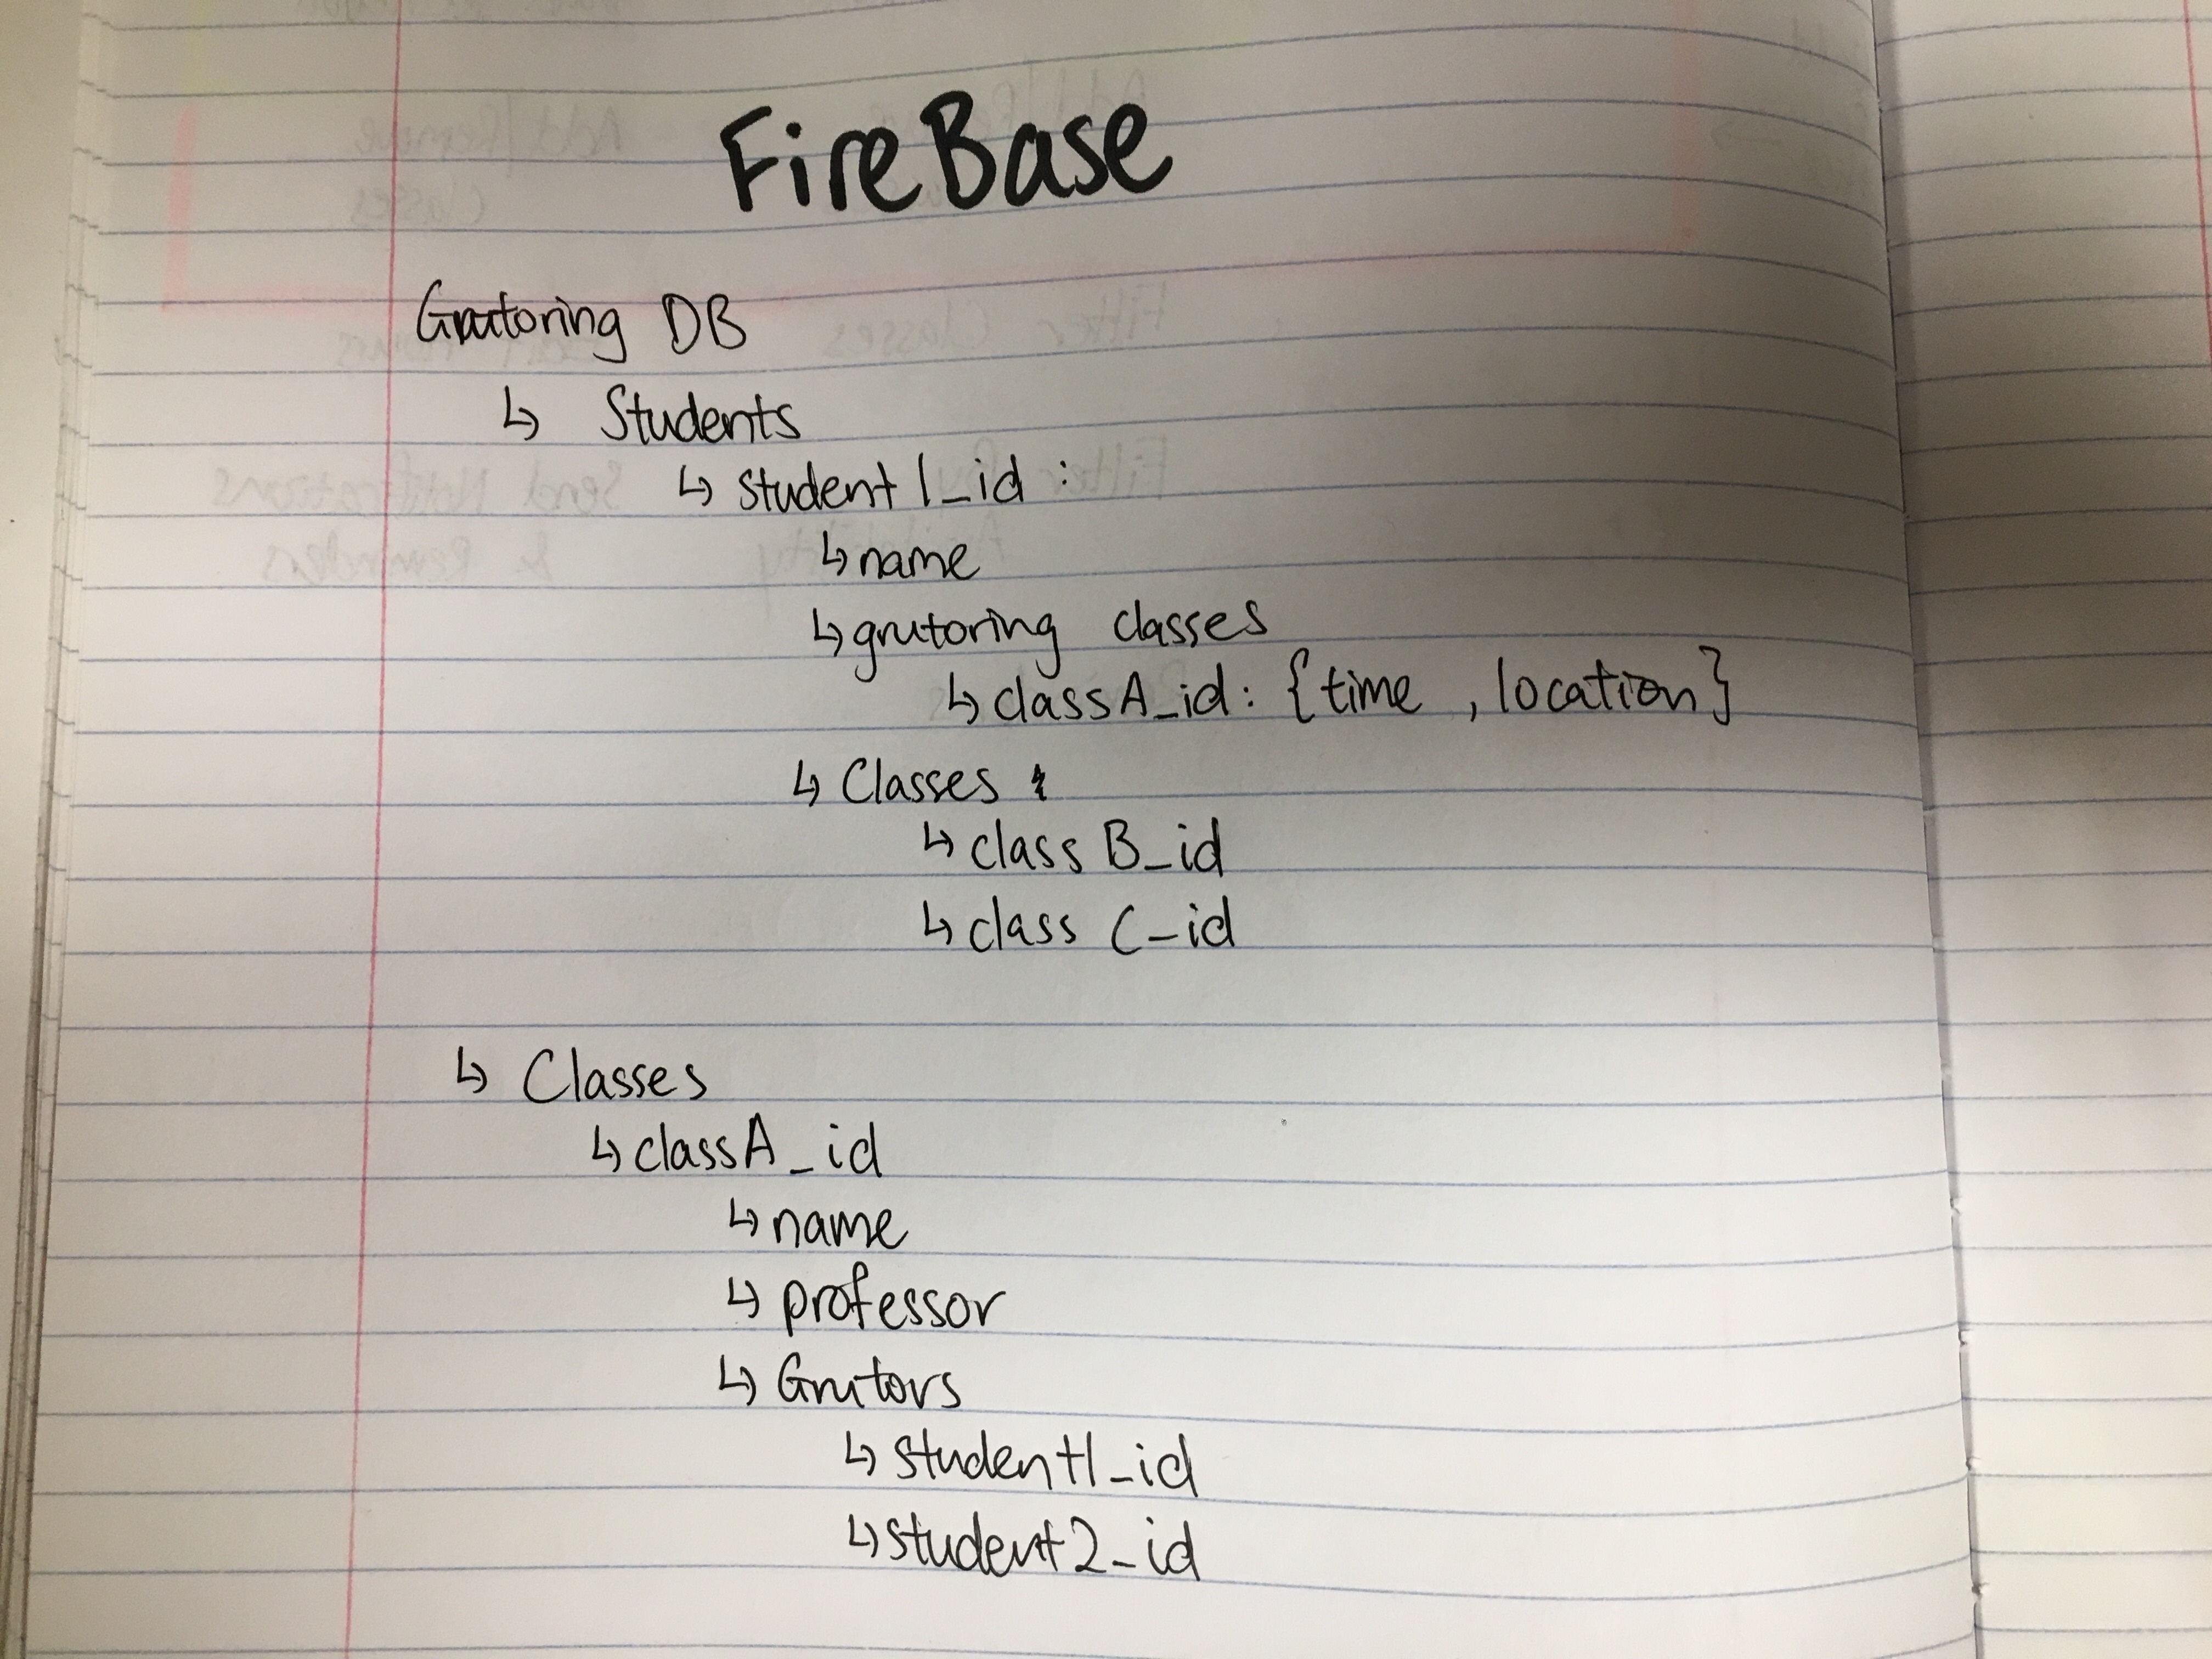 FireBase
Grutoring DB
↳ Students
↳ student1_id :
↳ name
↳ grutoring classes
↳ classA_id: {time , location}
↳ Classes
↳ class B_id
↳ class C_id
↳ Classes
↳ classA_id
↳ name
↳ professor
↳ Grutors
↳ student1_id
↳ student2_id